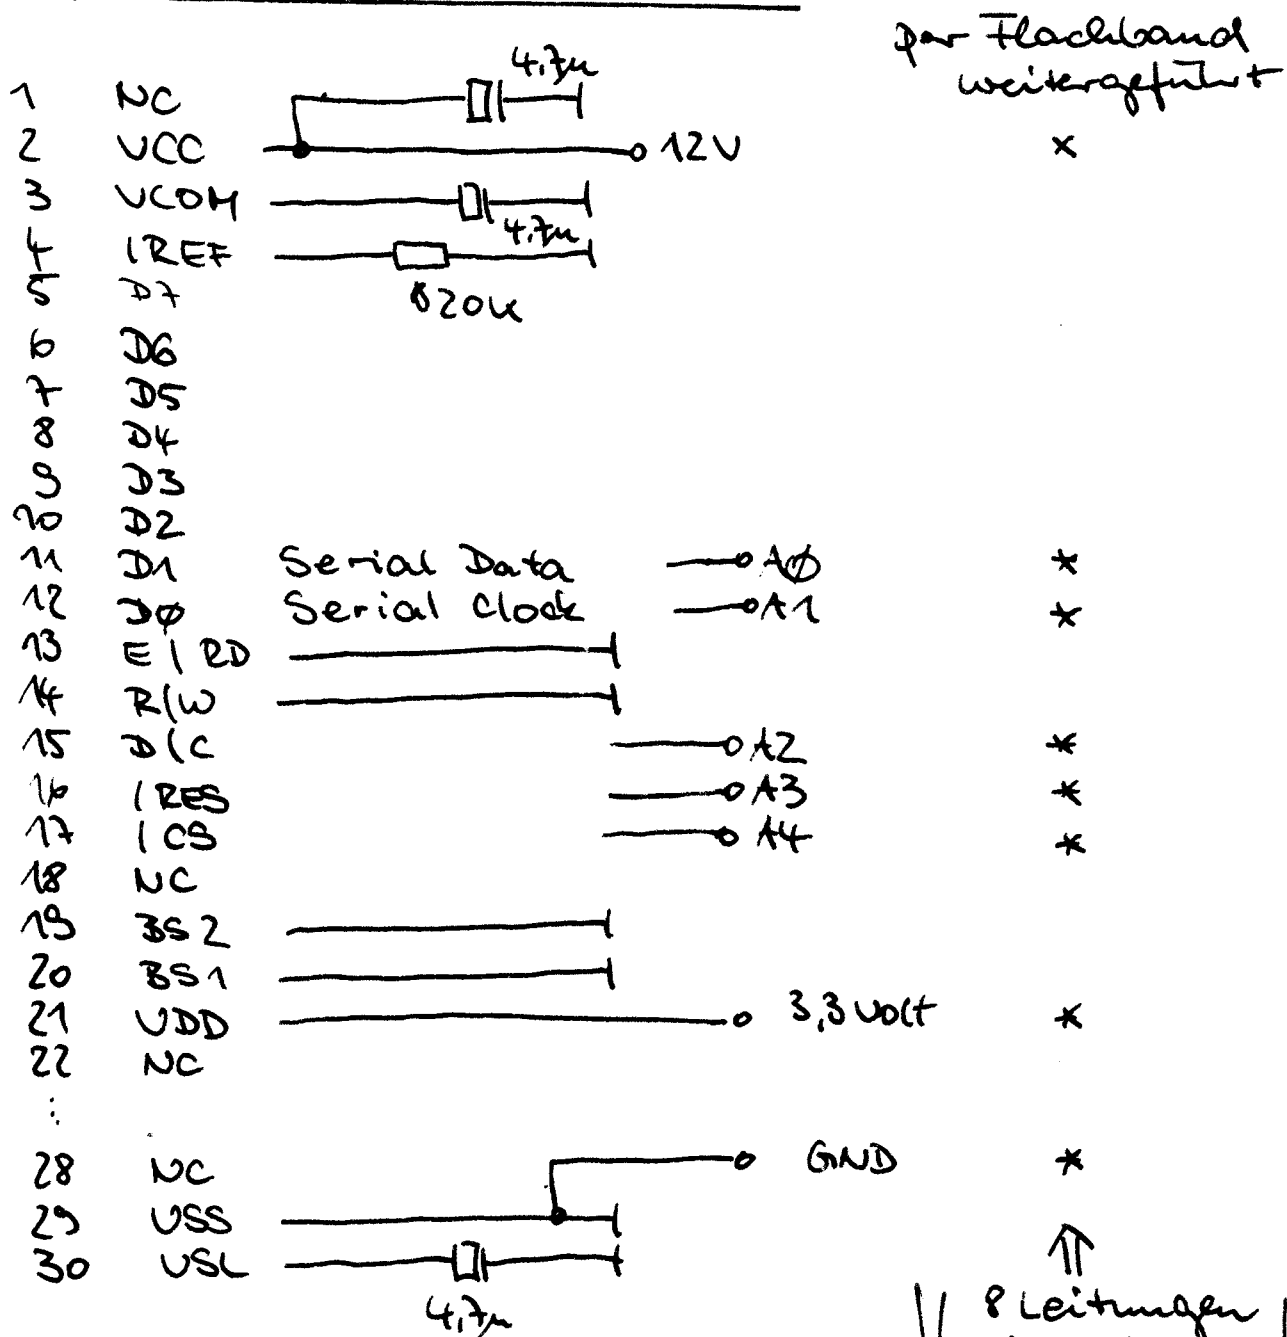 per Flachband
weitergeführt
4,7µ
1 NC
2 VCC 12V x
3 VCOM
4,7µ
4 IREF
820k
5 D7
6 D6
7 D5
8 D4
9 D3
10 D2
11 D1 Serial Data AØ *
12 DØ Serial Clock A1 *
13 E/RD
14 R/W
15 D/C A2 *
16 /RES A3 *
17 /CS A4 *
18 NC
19 BS2
20 BS1
21 VDD 3,3 Volt *
22 NC
⋮
28 NC GND *
29 VSS
30 VSL
4,7µ
8 Leitungen